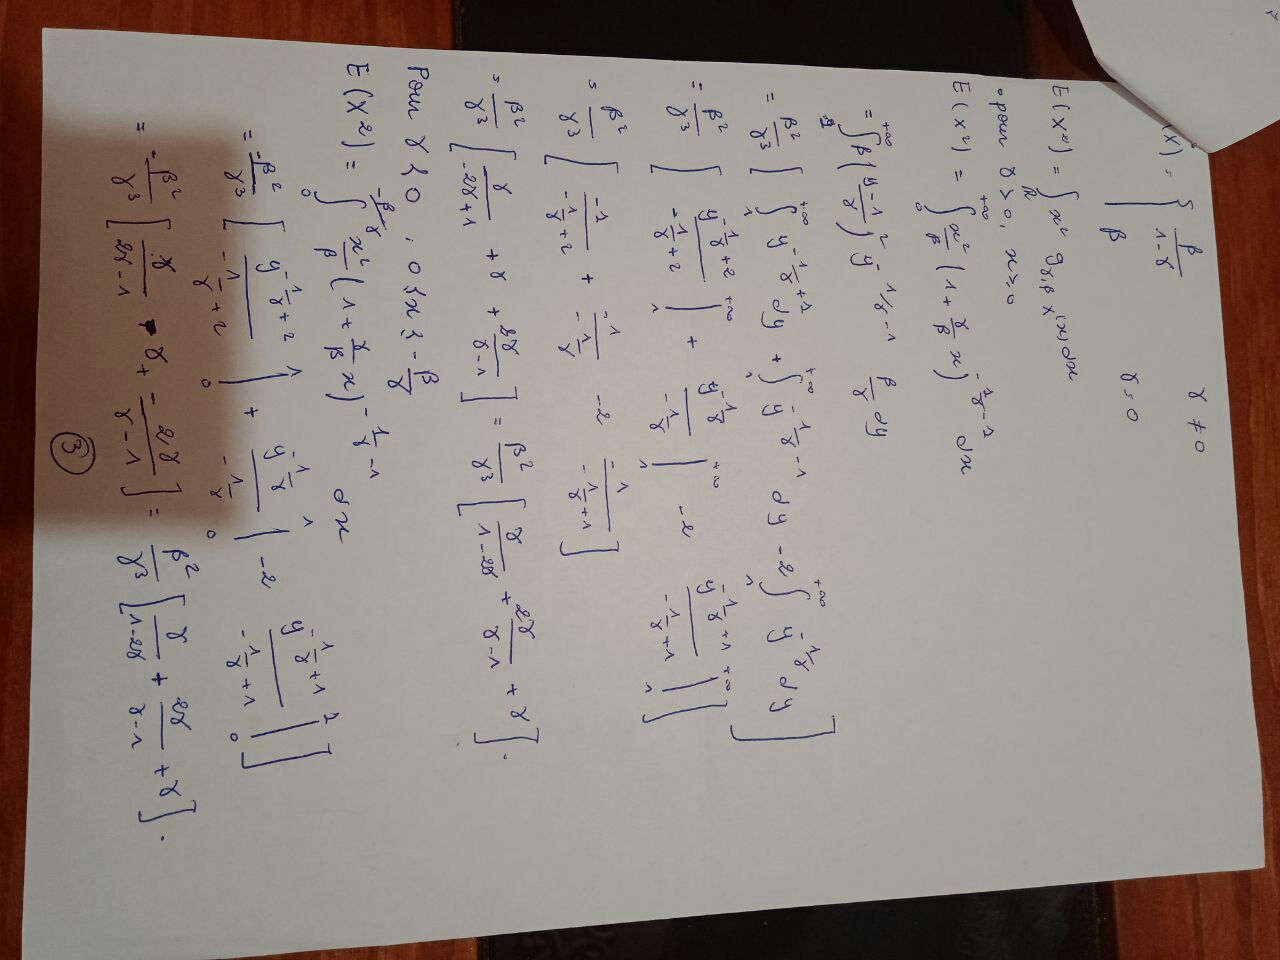 (X) = { β/(1-γ)   γ ≠ 0
β   γ = 0
E(X²) = ∫_ℝ x² g_{γ,β}(x) dx
• pour γ > 0, x ≥ 0
E(X²) = ∫_0^{+∞} x²/β (1 + γ/β x)^{-1/γ - 1} dx
= ∫_1^{+∞} β ((y-1)/γ)² y^{-1/γ - 1} β/γ dy
= β²/γ³ [ ∫_1^{+∞} y^{-1/γ + 1} dy + ∫_1^{+∞} y^{-1/γ - 1} dy - 2 ∫_1^{+∞} y^{-1/γ} dy ]
= β²/γ³ [ y^{-1/γ + 2}/(-1/γ + 2) |_1^{+∞} + y^{-1/γ}/(-1/γ) |_1^{+∞} - 2 y^{-1/γ + 1}/(-1/γ + 1) |_1^{+∞} ]
= β²/γ³ [ -1/(-1/γ + 2) + -1/(-1/γ) - 2 1/(-1/γ + 1) ]
= β²/γ³ [ γ/(-2γ + 1) + γ + 2γ/(γ-1) ] = β²/γ³ [ γ/(1-2γ) + 2γ/(γ-1) + γ ].
Pour γ < 0, 0 < x < -β/γ
E(X²) = ∫_0^{-β/γ} x²/β (1 + γ/β x)^{-1/γ - 1} dx
= -β²/γ³ [ y^{-1/γ + 2}/(-1/γ + 2) |_0^1 + y^{-1/γ}/(-1/γ) |_0^1 - 2 y^{-1/γ + 1}/(-1/γ + 1) |_0^1 ]
= -β²/γ³ [ γ/(2γ-1) - γ + -2γ/(γ-1) ] = β²/γ³ [ γ/(1-2γ) + 2γ/(γ-1) + γ ].
3